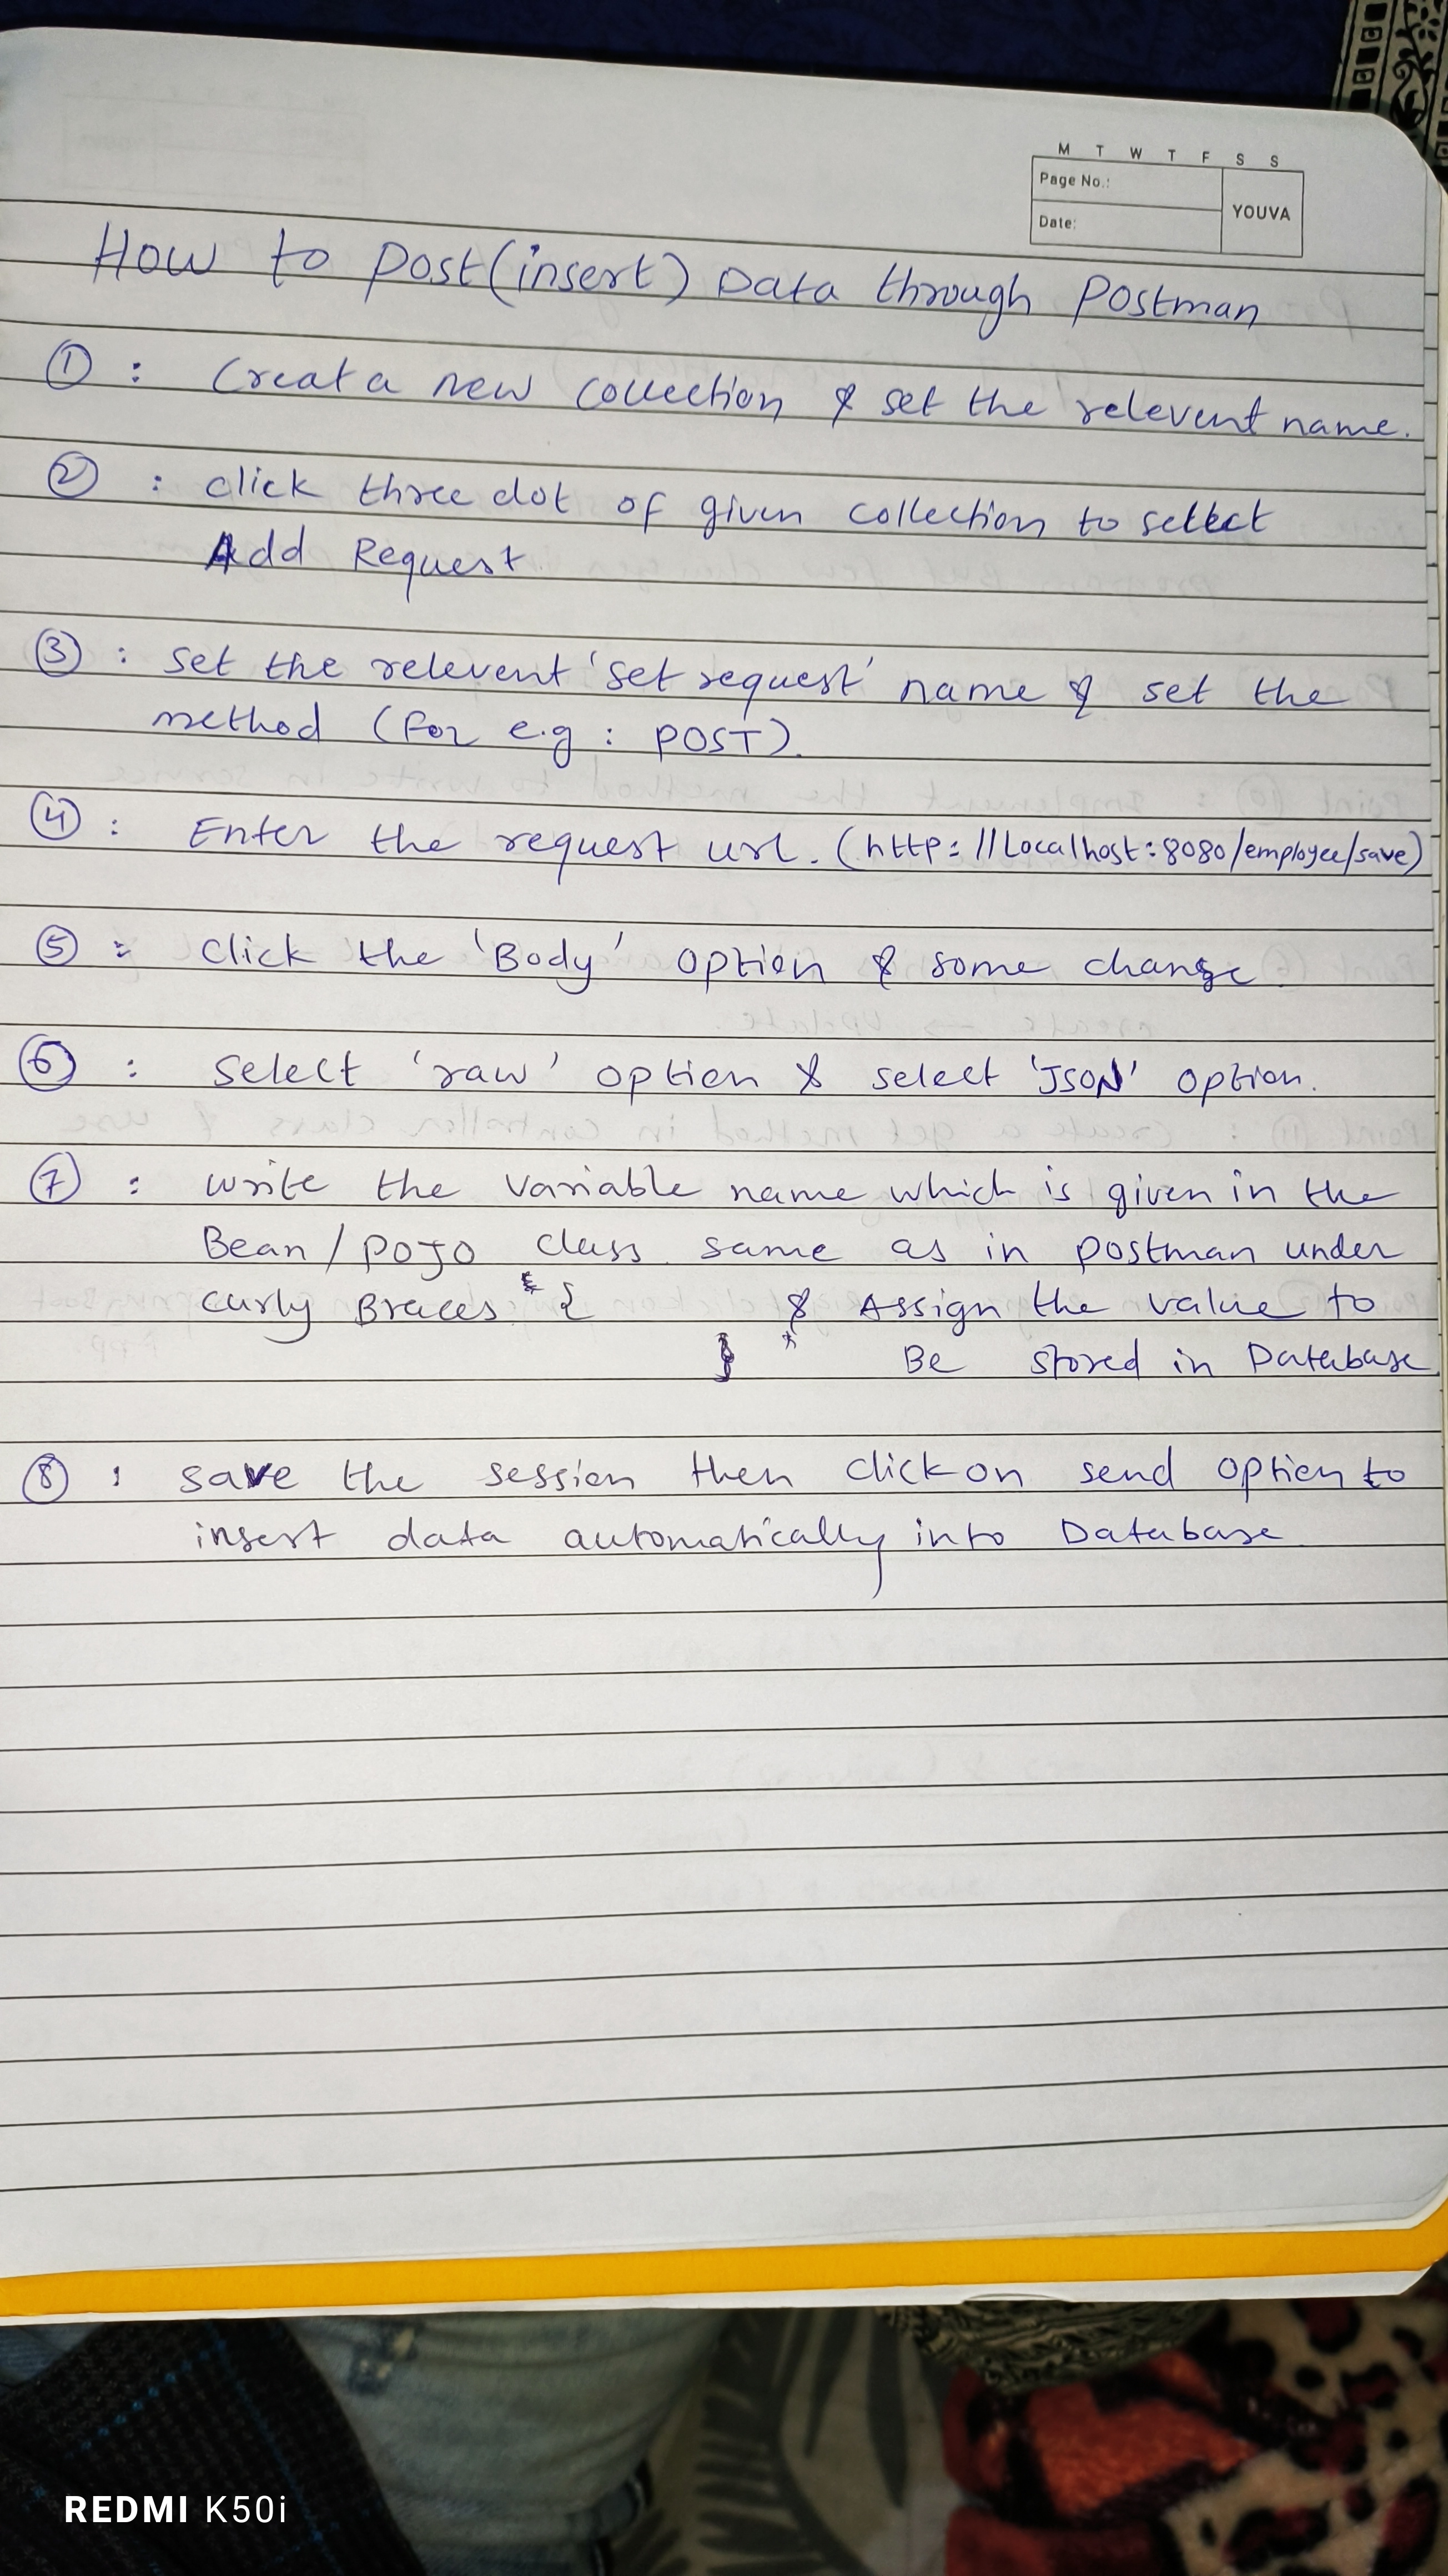 M T W T F S S
Page No.:
YOUVA
Date:
How to post(insert) Data through Postman
① : Creat a new collection & set the relevent name.
② : click three dot of given collection to select
Add Request
③ : set the relevent 'set request' name & set the
method (For e.g : POST).
④ : Enter the request url. (http://Localhost:8080/employee/save)
⑤ : Click the 'Body' option & some change
⑥ : Select 'raw' option & select 'JSON' option.
⑦ : write the variable name which is given in the
Bean/POJO class same as in postman under
curly Braces { & Assign the value to
} Be stored in Database.
⑧ : save the session then click on send option to
insert data automatically into Database
REDMI K50i